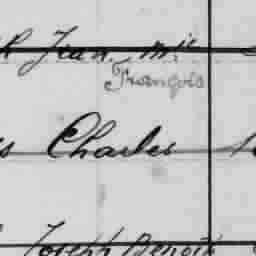 Jean. Mie
François
Charles
Joseph Benoit